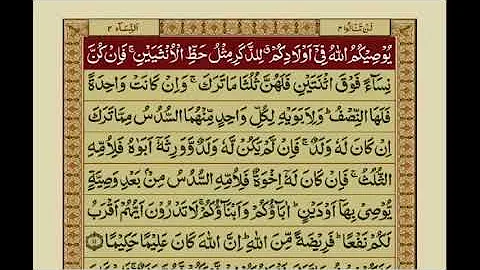 لن تنالوا ٤ النسآء ٤
يُوْصِيْكُمُ اللّٰهُ فِيْۤ اَوْلَادِكُمْ ۗ لِلذَّكَرِ مِثْلُ حَظِّ الْاُنْثَيَيْنِ ۚ فَاِنْ كُنَّ
نِسَآءً فَوْقَ اثْنَتَيْنِ فَلَهُنَّ ثُلُثَا مَا تَرَكَ ۚ وَاِنْ كَانَتْ وَاحِدَةً
فَلَهَا النِّصْفُ ۗ وَلِاَبَوَيْهِ لِكُلِّ وَاحِدٍ مِّنْهُمَا السُّدُسُ مِمَّا تَرَكَ
اِنْ كَانَ لَهٗ وَلَدٌ ۚ فَاِنْ لَّمْ يَكُنْ لَّهٗ وَلَدٌ وَّوَرِثَهٗۤ اَبَوٰهُ فَلِاُمِّهِ
الثُّلُثُ ۚ فَاِنْ كَانَ لَهٗۤ اِخْوَةٌ فَلِاُمِّهِ السُّدُسُ مِنْۢ بَعْدِ وَصِيَّةٍ
يُّوْصِيْ بِهَاۤ اَوْ دَيْنٍ ۗ اٰبَآؤُكُمْ وَاَبْنَآؤُكُمْ ۚ لَا تَدْرُوْنَ اَيُّهُمْ اَقْرَبُ
لَكُمْ نَفْعًا ۗ فَرِيْضَةً مِّنَ اللّٰهِ ۗ اِنَّ اللّٰهَ كَانَ عَلِيْمًا حَكِيْمًا ۝١١